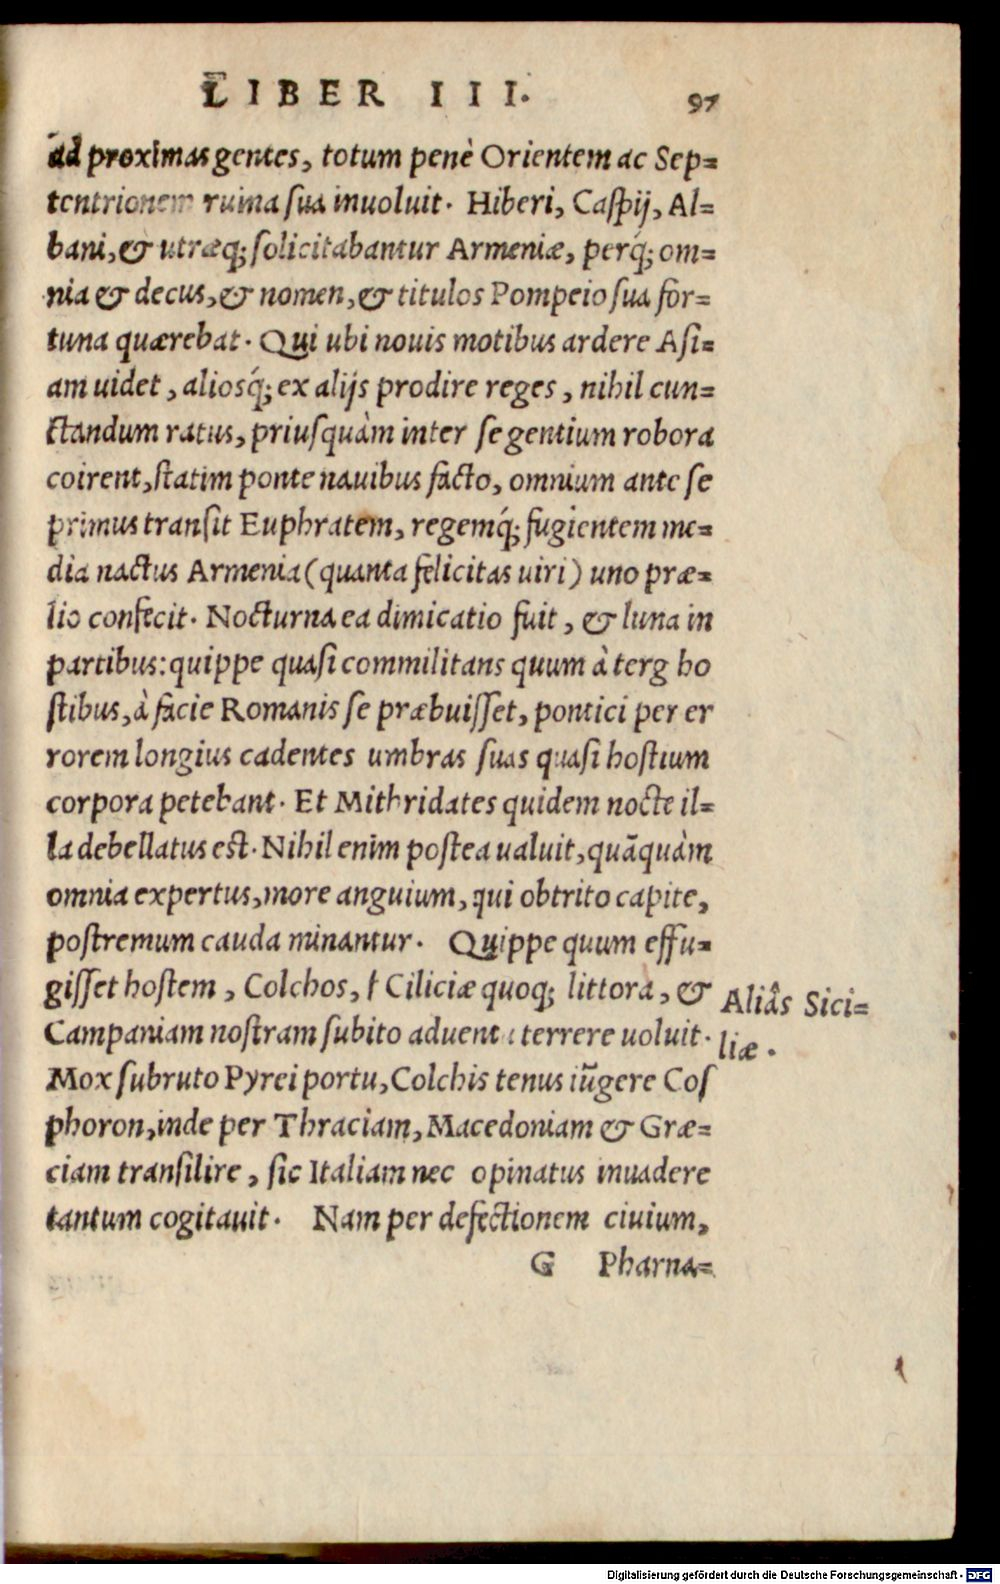 LIBER III. 97
ad proximas gentes, totum penè Orientem ac Sep=
tentrionem ruina sua inuoluit. Hiberi, Caspij, Al=
bani, & utræq; solicitabantur Armeniæ, perq́; om=
nia & decus, & nomen, & titulos Pompeio sua for=
tuna quærebat. Qui ubi nouis motibus ardere Asi=
am uidet, aliosq́; ex alijs prodire reges, nihil cun=
ctandum ratus, priusquàm inter se gentium robora
coirent, statim ponte nauibus facto, omnium ante se
primus transit Euphratem, regemq́; fugientem me=
dia nactus Armenia (quanta felicitas uiri) uno præ=
lio confecit. Nocturna ea dimicatio fuit, & luna in
partibus: quippe quasi commilitans quum à terg ho
stibus, à facie Romanis se præbuisset, pontici per er
rorem longius cadentes umbras suas quasi hostium
corpora petebant. Et Mithridates quidem nocte il=
la debellatus est. Nihil enim postea ualuit, quãquàm
omnia expertus, more anguium, qui obtrito capite,
postremum cauda minantur. Quippe quum effu=
gisset hostem, Colchos, ƚ Ciliciæ quoq; littora, &
Campaniam nostram subito aduentu terrere uoluit.
Aliâs Sici=
liæ.
Mox subruto Pyrei portu, Colchis tenus iũgere Cos
phoron, inde per Thraciam, Macedoniam & Græ=
ciam transilire, sic Italiam nec opinatus inuadere
tantum cogitauit. Nam per defectionem ciuium,
G Pharna=
Digitalisierung gefördert durch die Deutsche Forschungsgemeinschaft - DFG